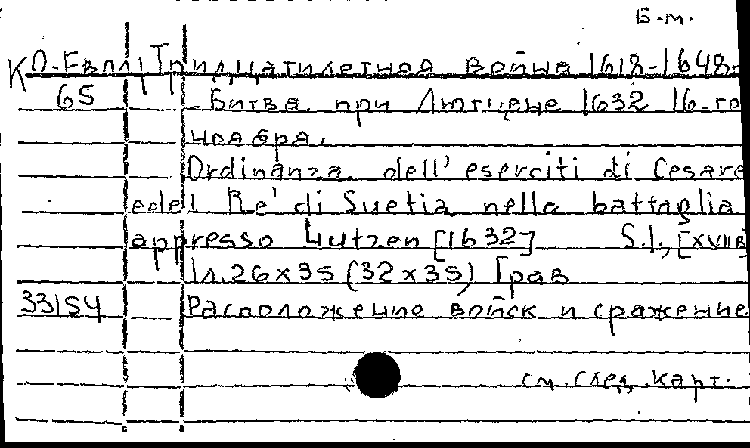 Б.м.
К О-Евп Тридцатилетная война 1618-1648
65 Битва при Лютцене 1632 16-го
ноября.
Ordinanza dell' eserciti di Cesare
e del Re' di Suetia nella battaglia
appresso Lutzen [1632] S.l., [XVII в
1 л. 26 x 35 (32 x 35) Грав
33154 Расположение войск и сражение
см. след. карт.